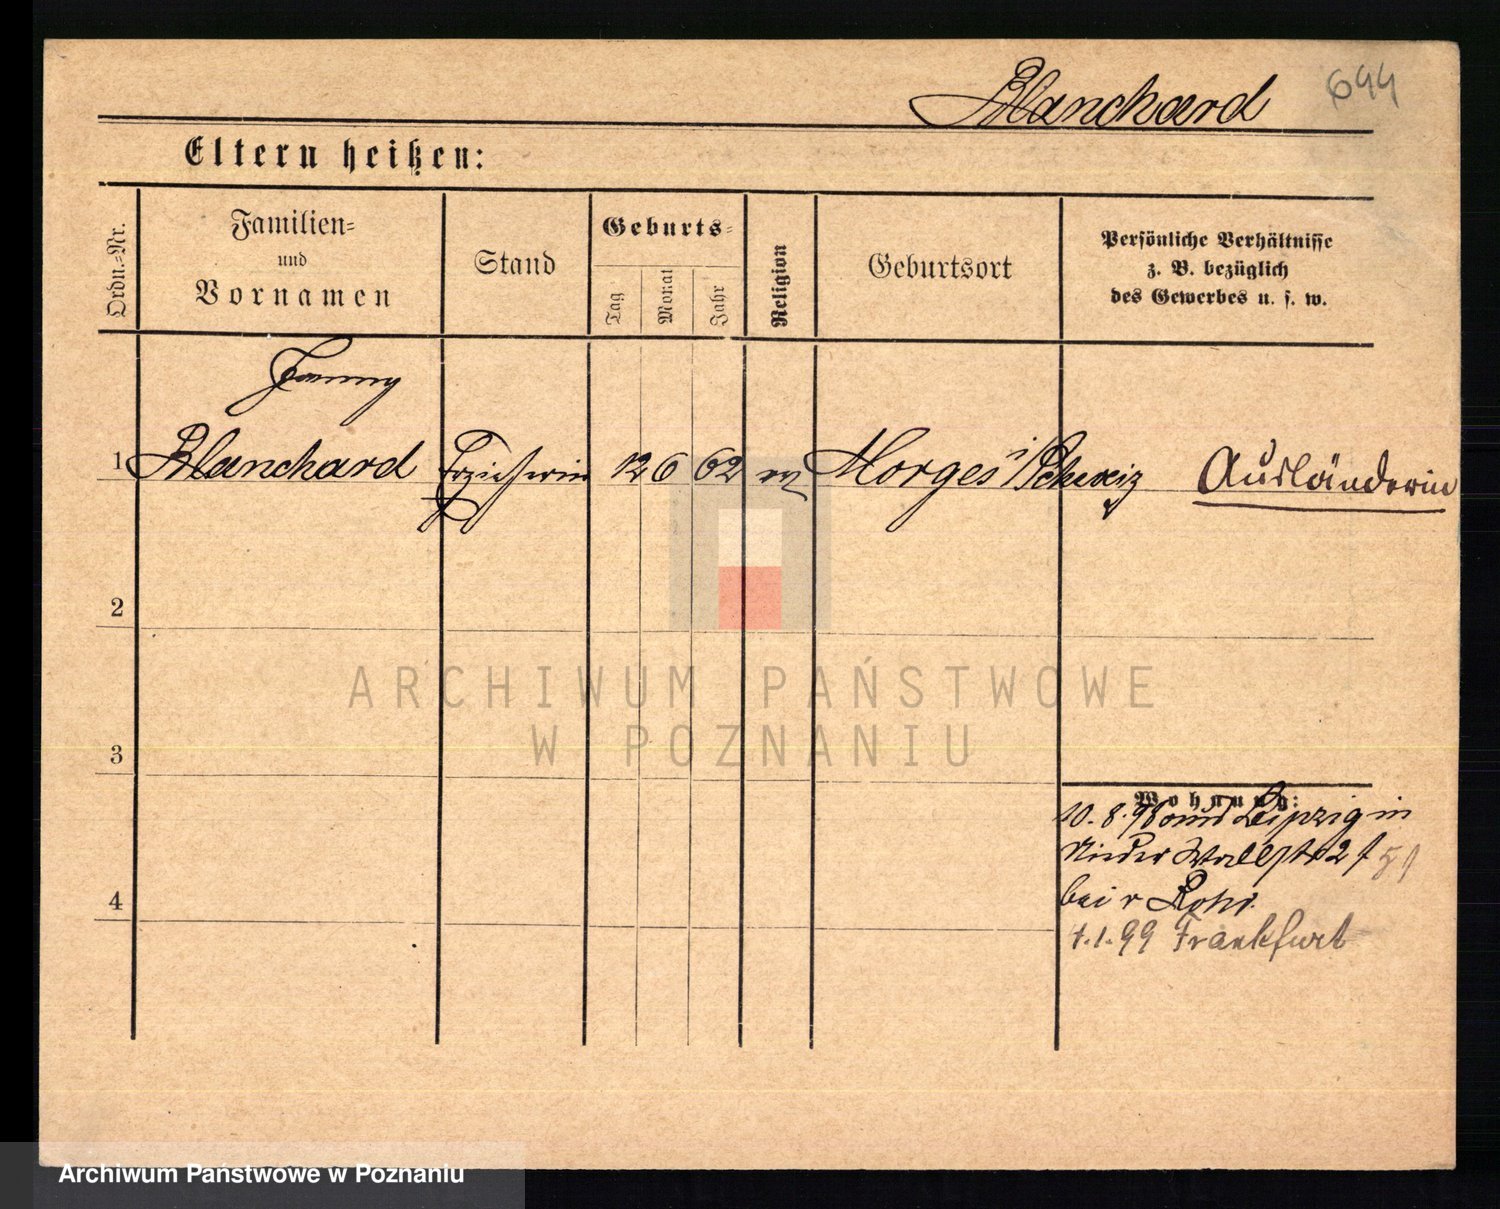 Blanchard 644
Eltern heißen:
Ordn.-Nr.
Familien-
und
Vornamen
Stand
Geburts-
Tag
Monat
Jahr
Religion
Geburtsort
Persönliche Verhältnisse
z. B. bezüglich
des Gewerbes u. s. w.
Fanny
1 Blanchard Erzieherin 12 6 62 Morges i/Schweiz Ausländerin
2
3
4
Wohnung:
10.8.98 aus Leipzig in
Nieder Wallstr 2
bei v Rohr.
4.1.99 Frankfurt
ARCHIWUM PAŃSTWOWE
W POZNANIU
Archiwum Państwowe w Poznaniu